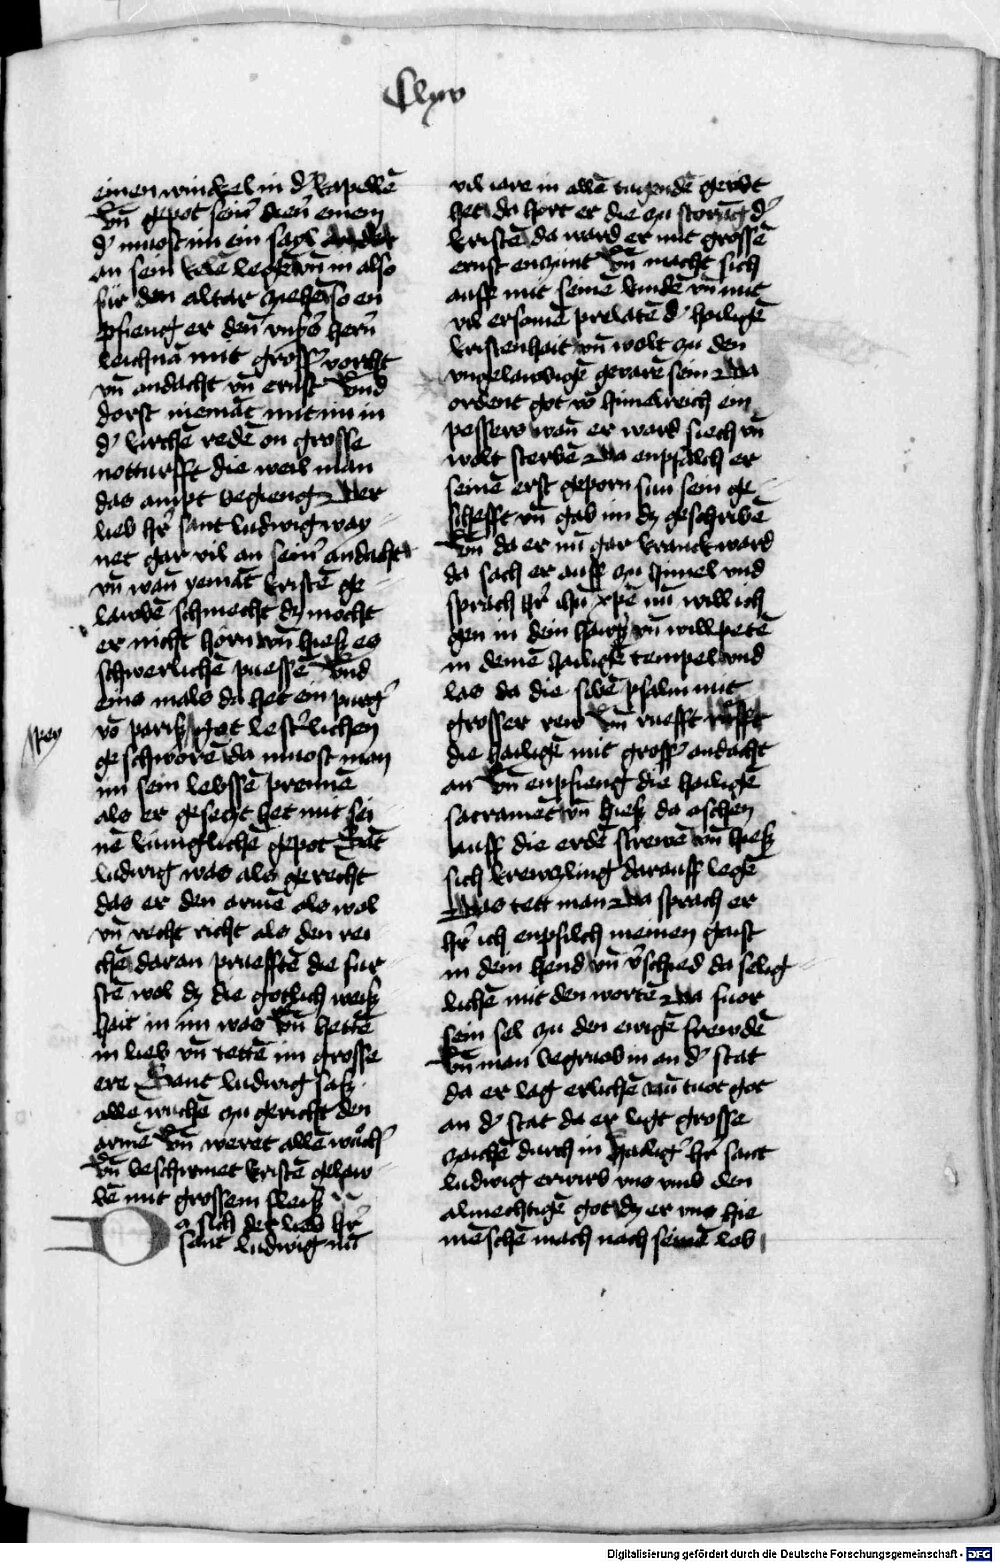 Clxv
einen winckel in d' kapellē
Vn̄ gepot sein' dien' einem
d' muost im ein sayl
an sein kelē legē vn̄ in also
für den altar ziehē so en
pfieng er den vnsers herrn
leichnā mit gross' vorcht
vn̄ andacht vn̄ ernst Vnd
dorst niemāt mit im in
d' kirchē redē on grosse
notturfft die weil man
das ampt begieng Der
lieb h'r sant ludwig way
net gar vil an sein' andacht
vn̄ wan̄ yemāt kristē ge
laubē schmecht dz mocht
er nicht hörn vn̄ hiess es
schwerlichē puessē Vnd
eins mals da het ein purg'
vō pariss got lesterlichen
geschworē da muost man
im sein lebssē prennē
als er gesetzt het mit sei
nē künigklichē gepot Sāt
ludwig was als gerecht
das er den armē als wol
vn̄ recht richt als den rei
chē daran pruefftē die fur
stē wol dz die gotlich weiss
hait in im was Vn̄ hettē
in lieb vn̄ tettē im grosse
ere Sant ludwig sass
alle wuchē zu gericht den
armē Vn̄ weret allē wuoch'
Vn̄ beschirmet kristē gelau
bē mit grossem fleiss
Da sich der lieb h'r
sant ludwig nū
spey
vil iare in allē tugendē geübt
het da hort er die zu storūg d'
kristē da ward er mit grossē
ernst enzunt Vn̄ macht sich
auff mit seinē kindē vn̄ mit
vil ersomē prelatē d' heiligē
kristenhait vn̄ wolt zu den
vngelaubigē gevarē sein Da
ordent got vō himelreich ein
pessers wan̄ er ward siech vn̄
wolt sterbē Da enpfalch er
seinē erst geporn sun sein ge
schefft vn̄ gab im dz geschribē
Vn̄ da er nū gar kranck ward
da sach er auff zu himel vnd
sprach h'r ihū xpē nū will ich
gen in dein hauss vn̄ will petē
in deinē heiligē tempel vnd
las da die sibē psalm mit
grosser rew Vn̄ ruefft
die heiligē mit gross' andacht
an Vn̄ enpfieng die heiligē
sacramēt vn̄ hiess da aschen
auff die erdē strewē vn̄ hiess
sich krewtzling darauff legē
Das tett man Da sprach er
h'r ich enpfilch meinen gaist
in dein hend vn̄ v'schied da selig
lichē mit den wortē Da fuor
sein sel zu den ewigē frewdē
Vn̄ man begruob in an d' stat
da er lag erlichē vn̄ tuot got
an d' stat da er ligt grosse
zaichē durch in Heilig' h'r sant
ludwig erwirb vns vmb den
almechtigē got dz er vns hie
mēschē mach nach seinē lob
Digitalisierung gefördert durch die Deutsche Forschungsgemeinschaft - DFG